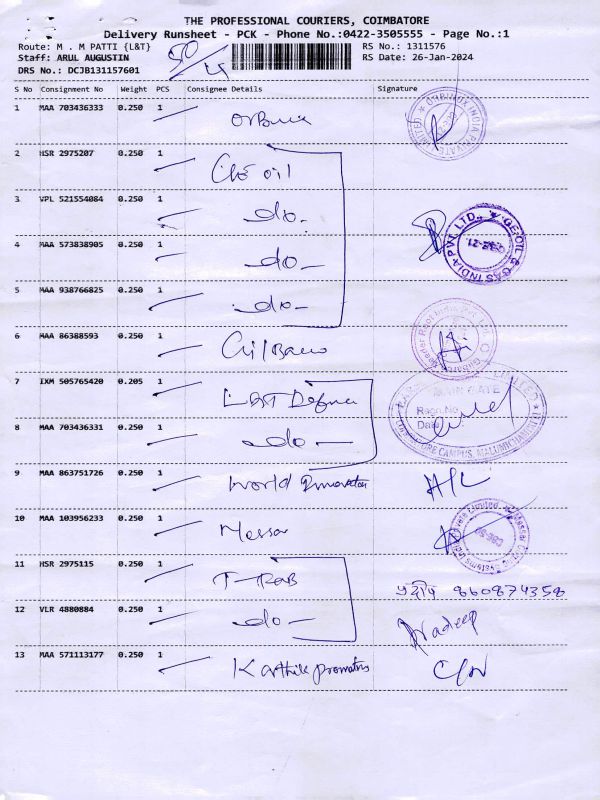 THE PROFESSIONAL COURIERS, COIMBATORE
Delivery Runsheet - PCK - Phone No.:0422-3505555 - Page No.:1
Route: M . M PATTI {L&T} RS No.: 1311576
Staff: ARUL AUGUSTIN RS Date: 26-Jan-2024
DRS No.: DCJB131157601
S No Consignment No Weight PCS Consignee Details Signature
1 MAA 703436333 0.250 1
2 HSR 2975207 0.250 1 oil
3 VPL 521554084 0.250 1 -do-
4 MAA 573838905 0.250 1 -do-
5 MAA 938766825 0.250 1 -do-
6 MAA 86388593 0.250 1
7 IXM 505765420 0.205 1 L&T
MAIN GATE
8 MAA 703436331 0.250 1 -do-
9 MAA 863751726 0.250 1 World
10 MAA 103956233 0.250 1 Messer
11 HSR 2975115 0.250 1 860874358
12 VLR 4880884 0.250 1 -do- Pradeep
13 MAA 571113177 0.250 1 Karthik